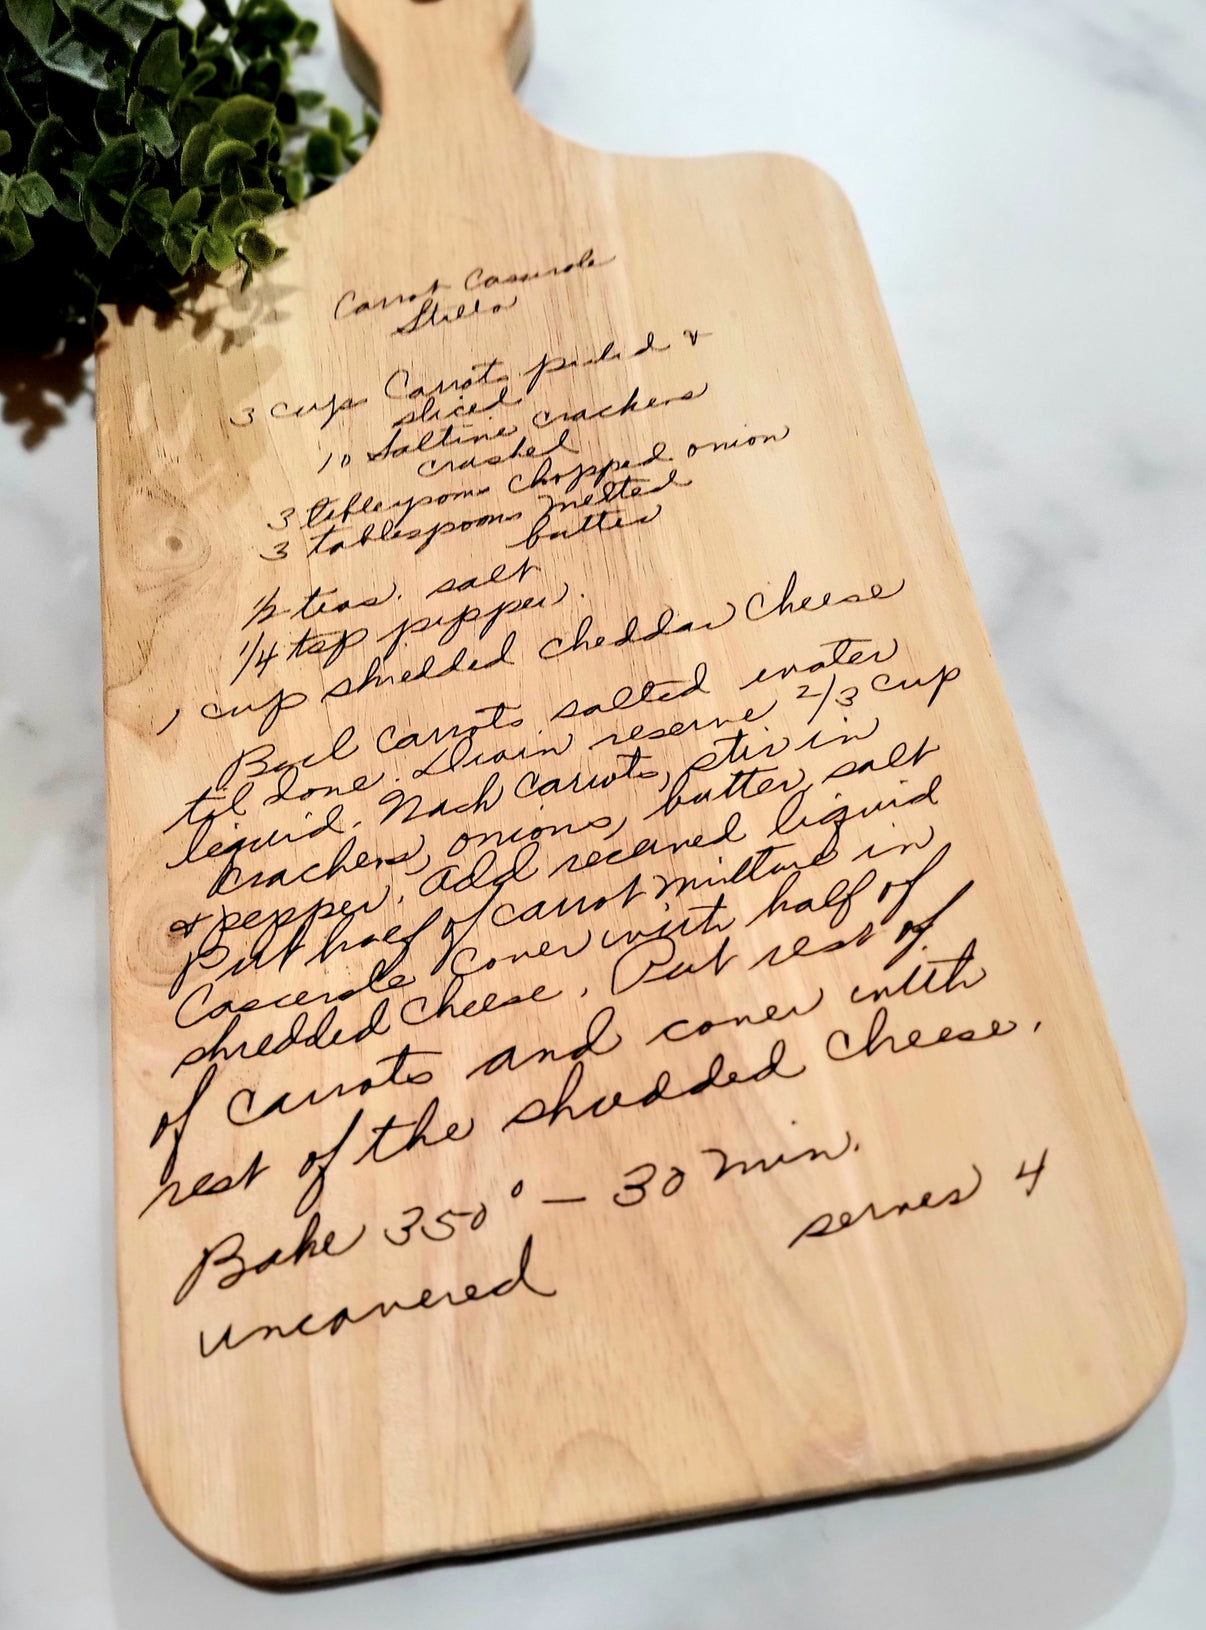 Carrot Casserole
Stella
3 cups Carrots peeled &
sliced
10 Saltine crackers
crushed
3 tablespoons chopped onion
3 tablespoons melted
butter
1/2 teas. salt
1/4 tsp pepper.
1 cup shredded cheddar cheese
Boil carrots salted water
til done. Drain reserve 2/3 cup
liquid. Mash carrots, stir in
crackers, onions, butter, salt
& pepper. Add reserved liquid
Put half of carrot mixture in
Casserole cover with half of
shredded cheese. Put rest of
of carrots and cover with
rest of the shredded cheese.
Bake 350° – 30 min.
serves 4
uncovered